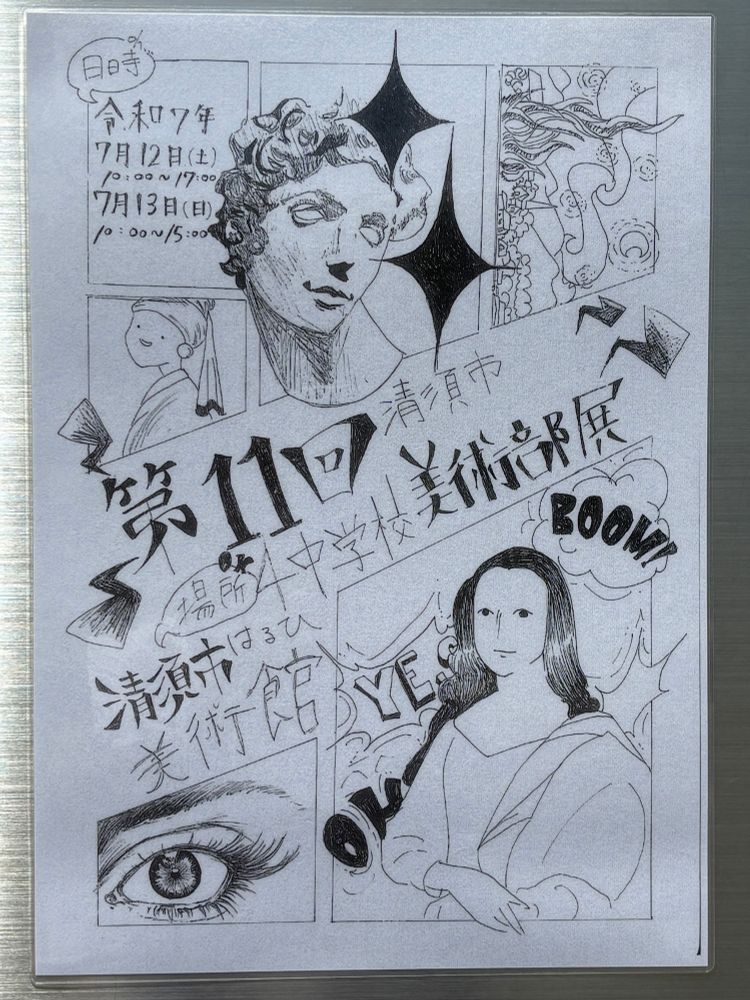 日時
令和7年
7月12日(土)
10:00~17:00
7月13日(日)
10:00~15:00
第11回
清須市
4中学校
美術部展
場所
清須市はるひ
美術館
BOOM!
YES
OK